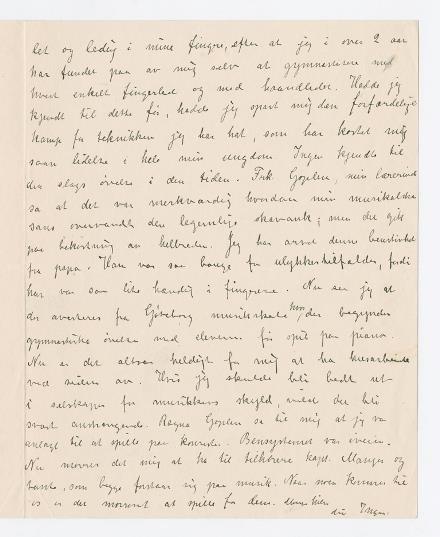 let og ledig i mine fingre, efter at jeg i over 2 aar
har fundet paa av mig selv at gymnastisere med
hvert enkelt fingerled og med haandledet. Hadde jeg
kjendt til dette før, hadde jeg spart mig den forfærdelige
kamp for teknikken jeg har hat, som har kostet mig
saan lidelse i hele min ungdom. Ingen kjendte til
den slags øvelse i den tiden. Frk. Gojelen, min lærerinde
sa at det var merkværdig hvordan min musikalske
sans overvandt den legemlige skavank; men det gik
paa bekostning av helbreden. Jeg har arvet denne
fra papa. Han var saa bange for ulykkestilfælder, fordi
han var saa lite hændig i fingrene. Nu ser jeg at
der averteres fra Göteborg musikskole hvor der begynder
gymnastiske øvelser med eleverne før spil paa piano.
Nu er det altsaa heldigt for mig at ha
ved siden av. Hvis jeg skulde bli bedt ut
i selskaper for musikkens skyld, vilde det bli
svært anstrengende. Ragna Gojelen sa til mig at jeg var
anlagt til at spille paa konserter. Bensystemet var iveien.
Nu morer det mig at ha til tilhørere kapt. Manger og
tante, som begge forstaar sig paa musik. Naar noen kommer til
os er det morsomt at spille for dem.
din Inga.